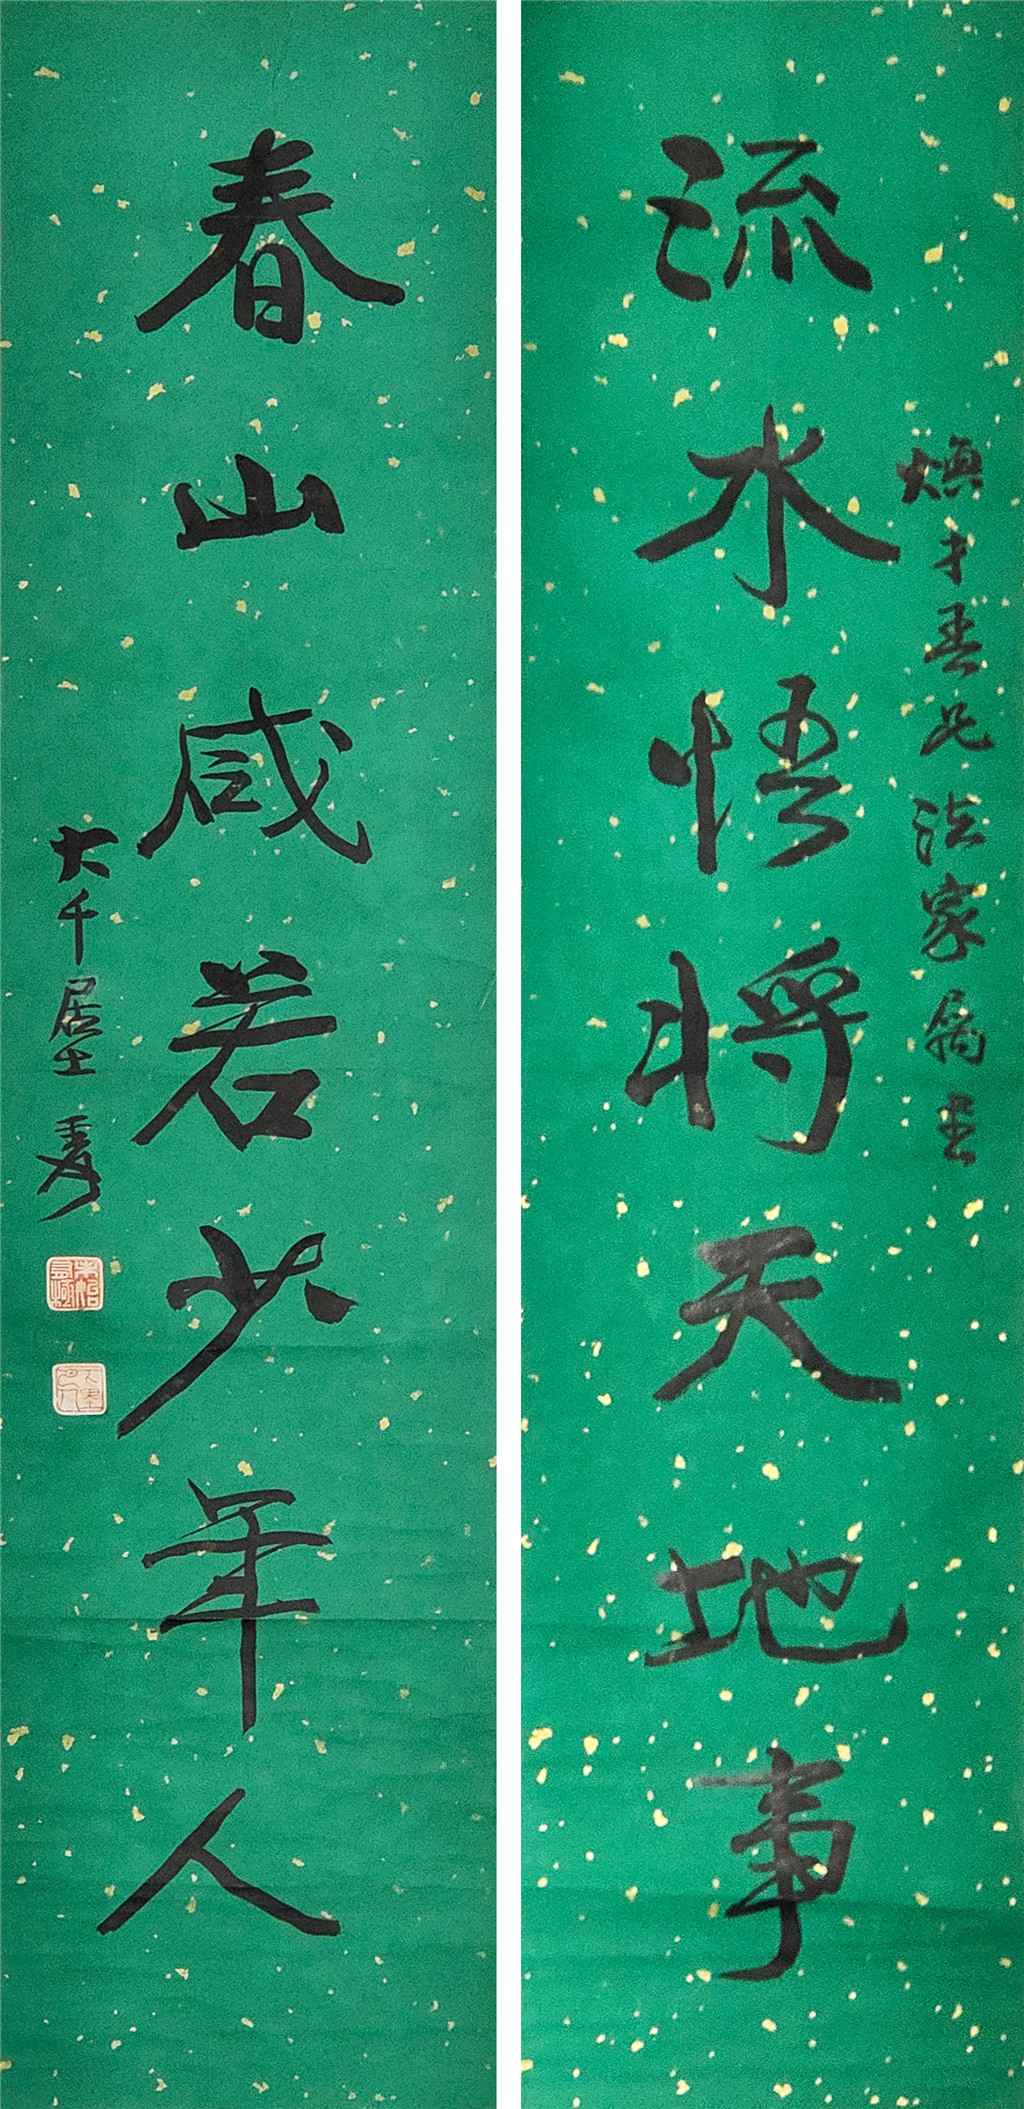 煥才吾兄法家屬書
流水悟將天地事
春山咸若少年人
大千居士爰